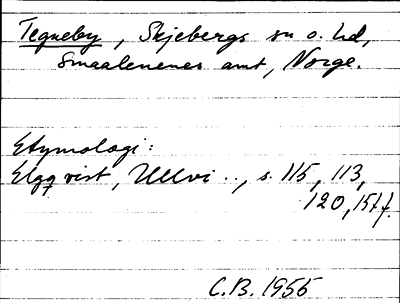 Tegneby, Skjebergs sn o. hd,
Smaalenenes amt, Norge.
Etymologi:
Elgqvist, Ullvi .., s. 115, 113,
120, 15ff.
C.B. 1955